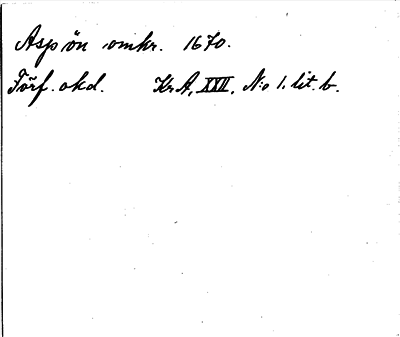 Aspön omkr. 1670.
Förf. okd. Kr.A, XXII, N:o 1. lit. b.